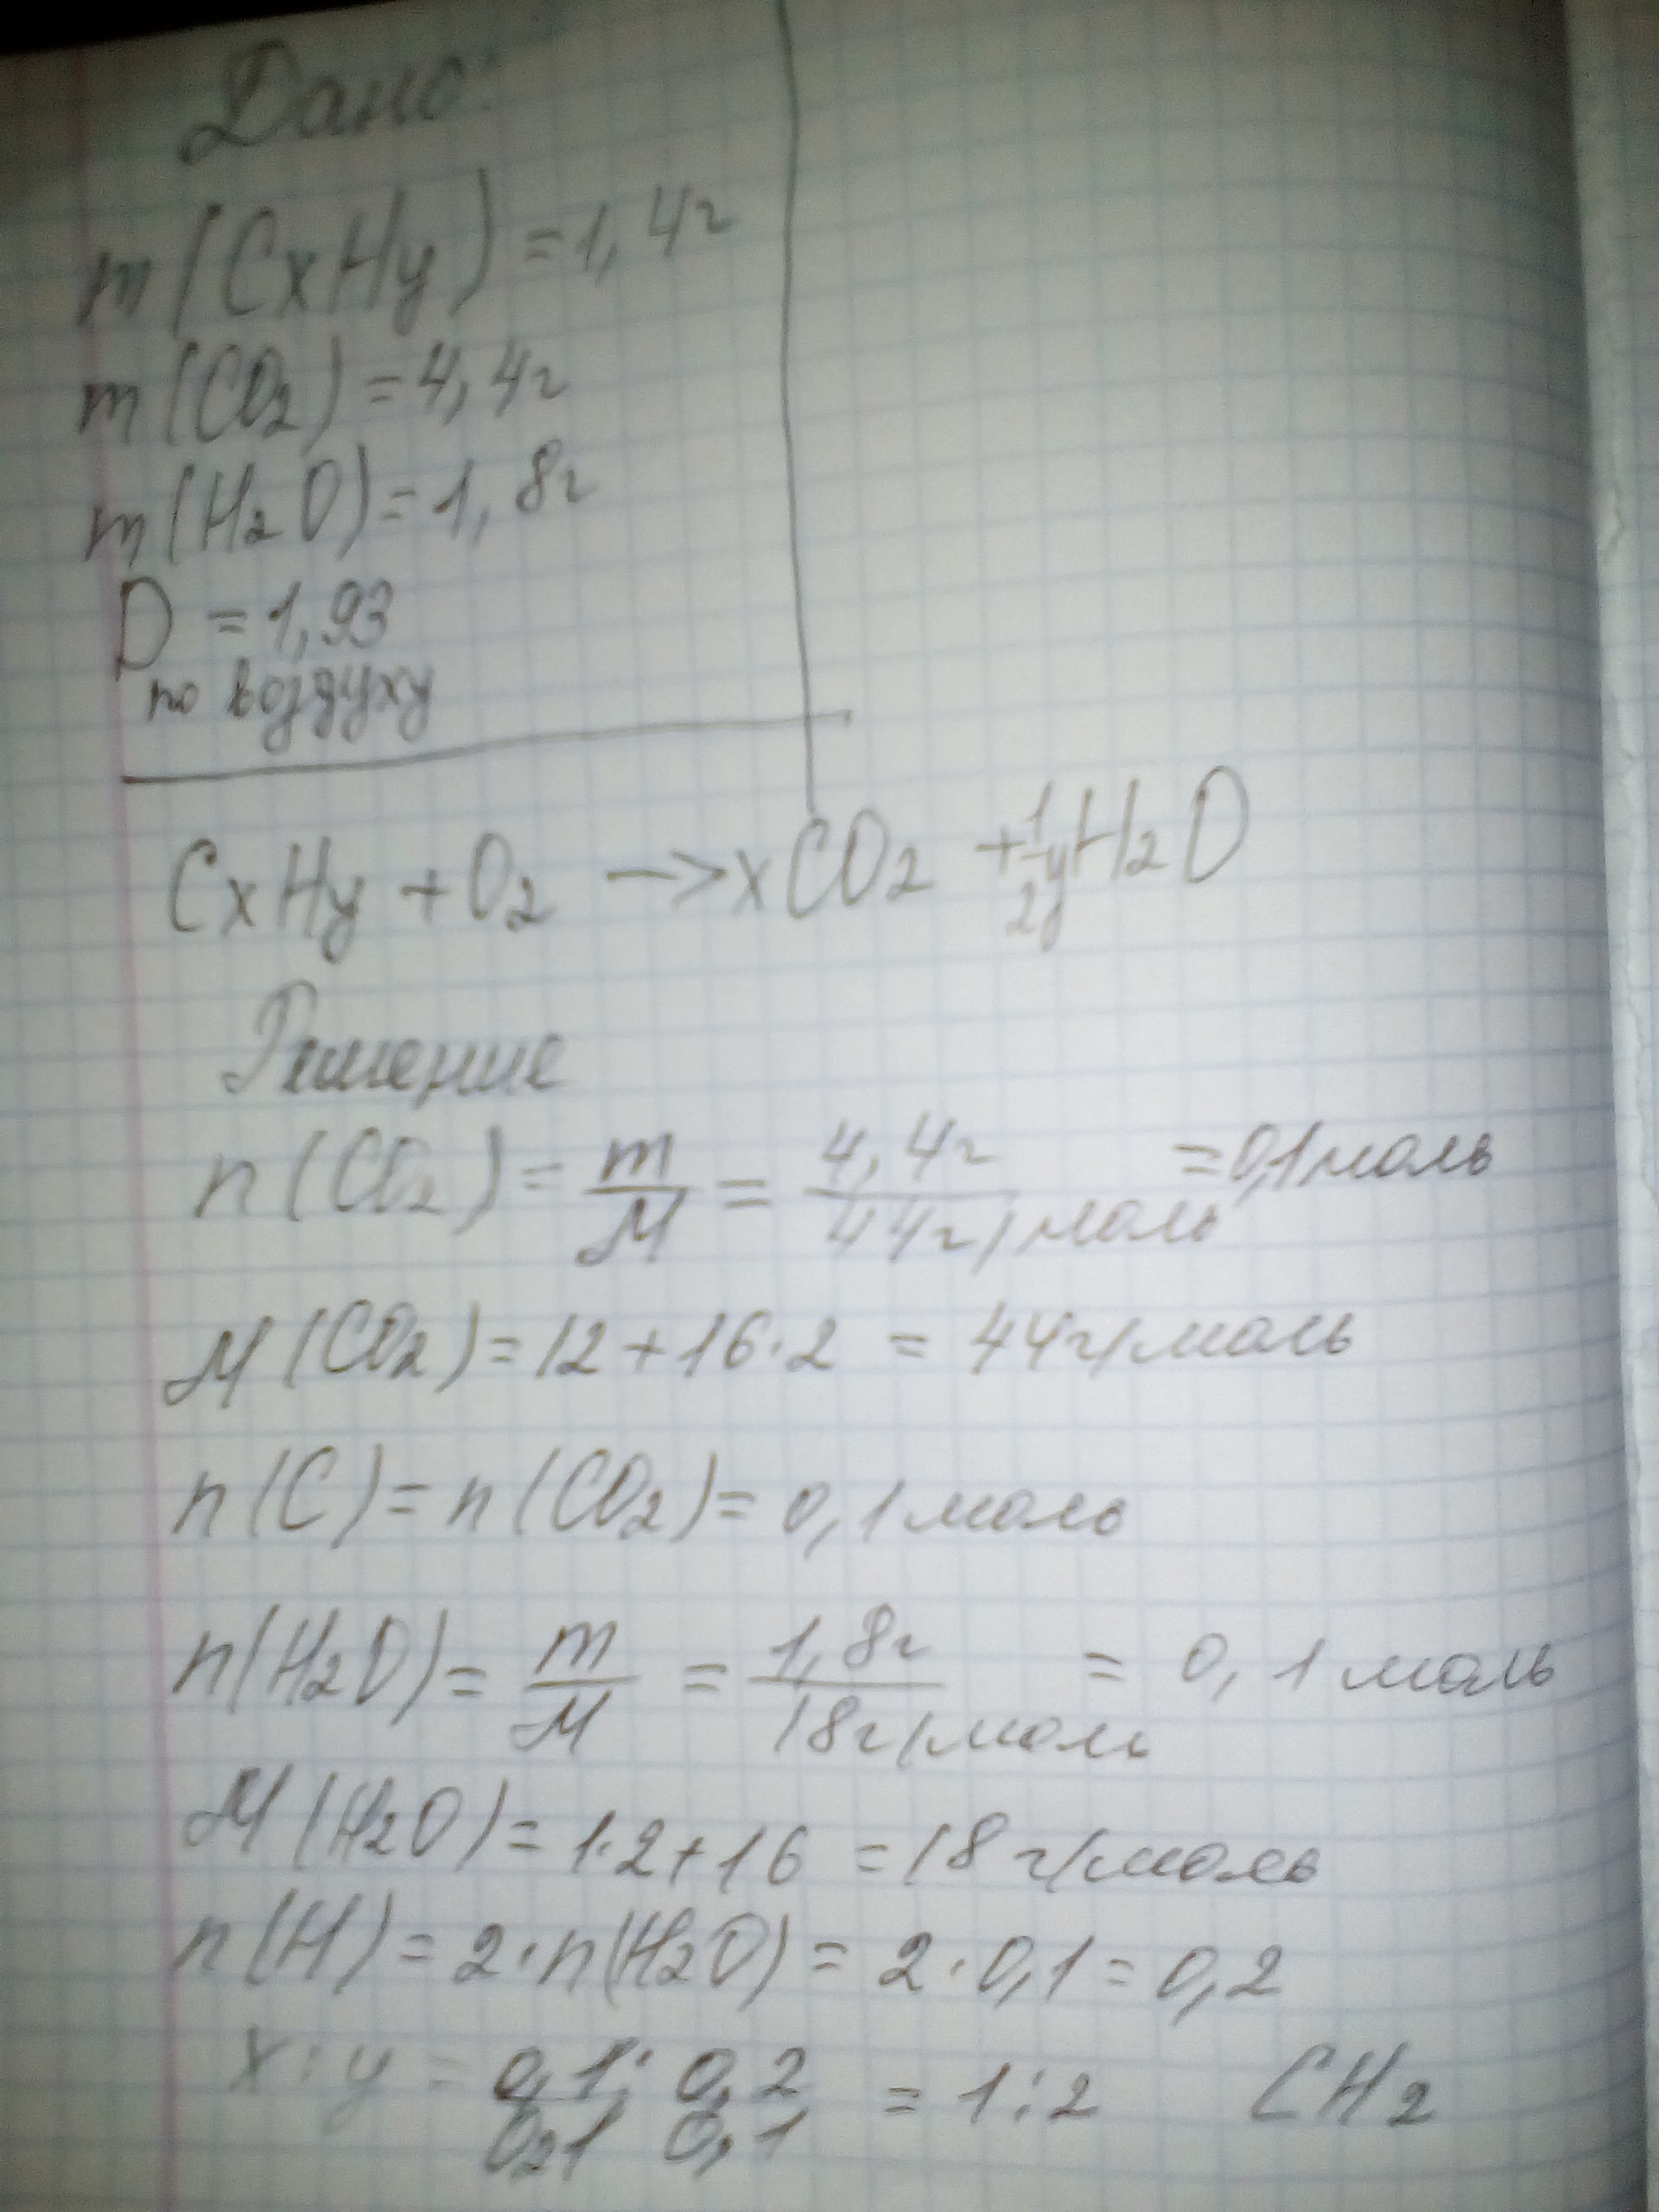 Дано:
m(CxHy)=1,4г
m(CO2)=4,4г
m(H2O)=1,8г
D =1,93
по воздуху
CxHy+O2 ->xCO2 +1/2yH2O
Решение
n(CO2)=m/M=4,4г/44г/моль =0,1моль
M(CO2)=12+16·2 = 44г/моль
n(C)=n(CO2)=0,1моль
n(H2O)=m/M=1,8г/18г/моль = 0,1моль
M(H2O)=1·2+16 =18г/моль
n(H)=2·n(H2O)=2·0,1=0,2
x:y = 0,1/0,1 : 0,2/0,1 = 1:2 CH2